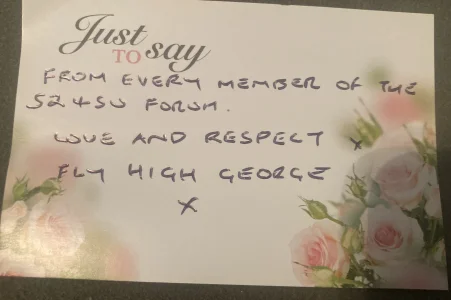 Just
TO say
FROM EVERY MEMBER OF THE
S24SU FORUM.
LOVE AND RESPECT x
FLY HIGH GEORGE
X